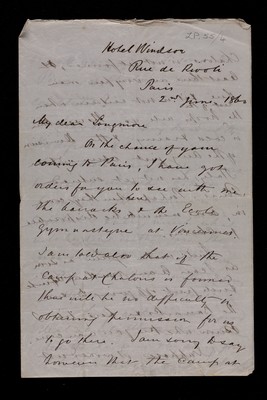 Hotel Windsor
Rue de Rivoli
Paris
2nd June 1860
My dear Longmore
On the chance of your
coming to Paris, I have got
orders for you to see with me
here
the barracks & the Ecole
Gymnastique at Vincennes
I am told also that if the
Camp at Chalons is formed
there will be no difficulty in
obtaining permission for us
to go there. I am sorry to say
however that the Camp at